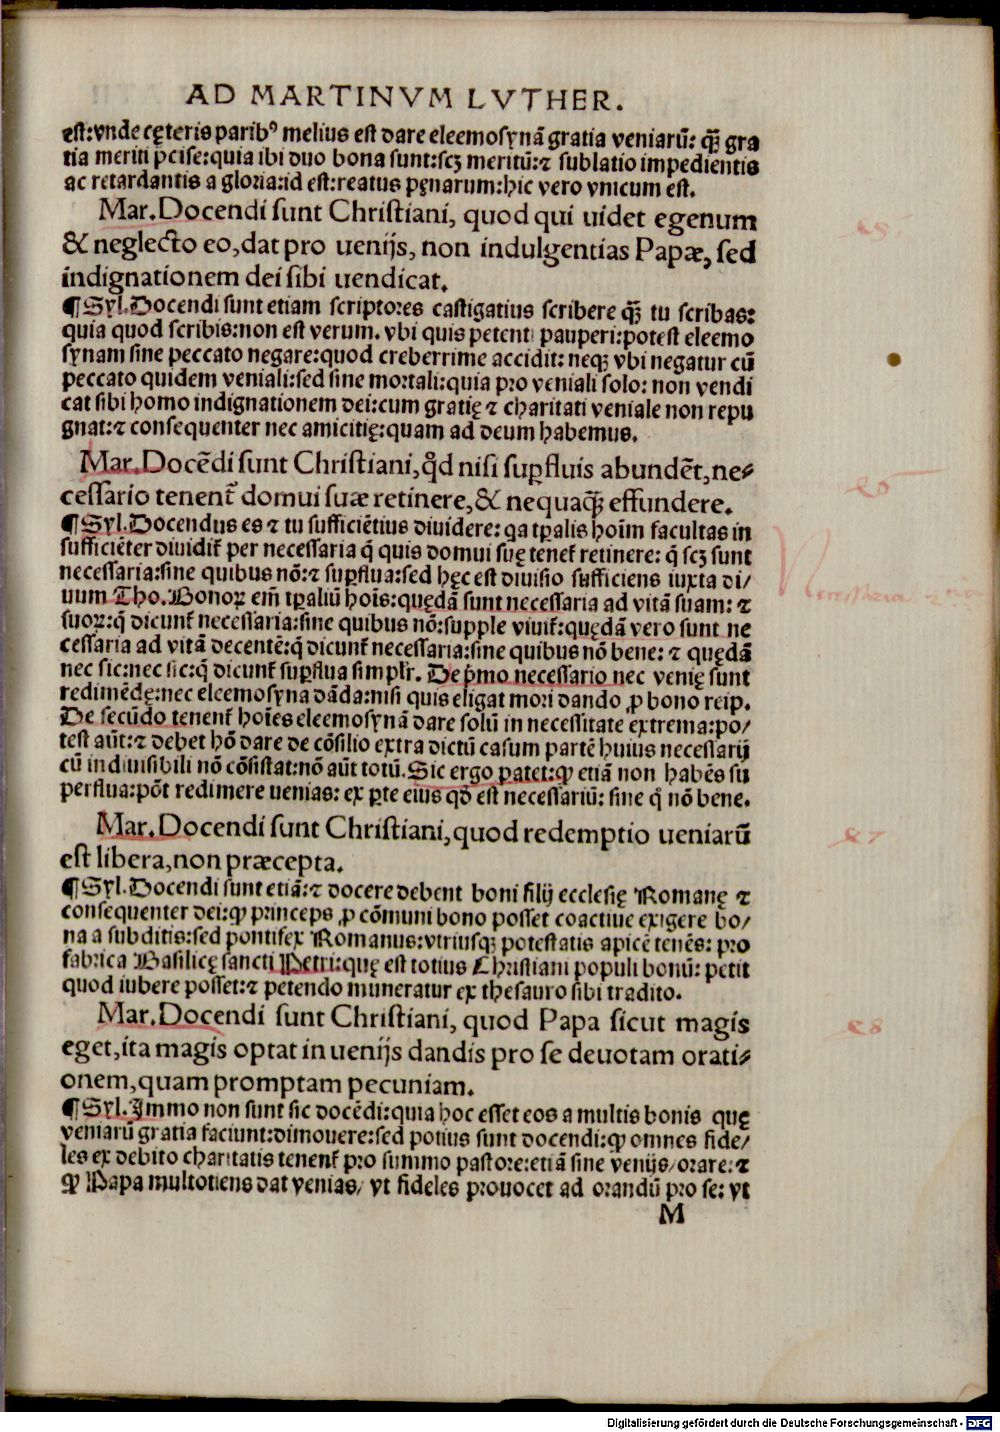 AD MARTINVM LVTHER.
est: vnde cęteris paribꝰ melius est dare eleemosynã gratia veniarũ: q̃ȝ gra
tia meriti p̃cise: quia ibi duo bona sunt: scȝ meritũ: ⁊ sublatio impedientis
ac retardantis a gloria: id est: reatus pęnarum: hic vero vnicum est.
Mar. Docendi sunt Christiani, quod qui uidet egenum
& neglecto eo, dat pro uenijs, non indulgentias Papæ, sed
indignationem dei sibi uendicat.
¶ Syl. Docendi sunt etiam scriptores castigatius scribere q̃ȝ tu scribas:
quia quod scribis: non est verum. vbi quis petenti pauperi: potest eleemo
synam sine peccato negare: quod creberrime accidit: neqȝ vbi negatur cũ
peccato quidem veniali: sed sine mortali: quia pro veniali solo: non vendi
cat sibi homo indignationem dei: cum gratię ⁊ charitati veniale non repu
gnat: ⁊ consequenter nec amicitię: quam ad deum habemus.
Mar. Docẽdi sunt Christiani, qd̃ nisi suꝑfluis abundẽt, ne⸗
cessario tenent̃ domui suæ retinere, & nequaq̃ȝ effundere.
¶ Syl. Docendus es ⁊ tu sufficiẽtius diuidere: qa tꝑalis hoĩm facultas in
sufficiẽter diuidit̃ per necessaria q̃ quis domui suę tenet̃ retinere: q̃ scȝ sunt
necessaria: sine quibus nõ: ⁊ suꝑflua: sed hęc est diuisio sufficiens iuxta di/
uum Tho. Bonoꝝ em̃ tꝑaliũ hoĩs: quędã sunt necessaria ad vitã suam: ⁊
suoꝝ: q̃ dicunt̃ necessaria: sine quibus nõ: supple viuit̃: quędã vero sunt ne
cessaria ad vitã decentẽ: q̃ dicunt̃ necessaria: sine quibus nõ bene: ⁊ quędã
nec sic: nec sic: q̃ dicunt̃ suꝑflua simpłr. De p̃mo necessario nec venię sunt
redimẽdę: nec eleemosyna dãda: nisi quis eligat mori dando ꝓ bono reip.
De secũdo tenent̃ hoĩes eleemosynã dare solũ in necessitate extrema: po/
test aũt: ⁊ debet hõ dare de cõsilio extra dictũ casum partẽ huius necessarij
cũ in diuisibili nõ cõsistat: nõ aũt totũ. Sic ergo patet: ꝙ etiã non habẽs su
perflua: põt redimere uenias: ex ꝑte eius qd̃ est necessariũ: sine q̃ nõ bene.
Mar. Docendi sunt Christiani, quod redemptio ueniarũ
est libera, non præcepta.
¶ Syl. Docendi sunt etiã: ⁊ docere debent boni filij ecclesię Romanę ⁊
consequenter dei: ꝙ princeps ꝓ cõmuni bono posset coactiue exigere bo/
na a subditis: sed pontifex Romanus: vtriusqȝ potestatis apicẽ tenẽs: pro
fabrica Basilicę sancti Petri: quę est totius Christiani populi bonũ: petit
quod iubere posset: ⁊ petendo muneratur ex thesauro sibi tradito.
Mar. Docendi sunt Christiani, quod Papa sicut magis
eget, ita magis optat in uenijs dandis pro se deuotam orati⸗
onem, quam promptam pecuniam.
¶ Syl. Immo non sunt sic docẽdi: quia hoc esset eos a multis bonis quę
veniarũ gratia faciunt: dimouere: sed potius sunt docendi: ꝙ omnes fide/
les ex debito charitatis tenent̃ pro summo pastore: etiã sine venijs/ orare: ⁊
ꝙ Papa multotiens dat venias/ vt fideles prouocet ad orandũ pro se: vt
M
25.
26
Necessaria
27
28
Digitalisierung gefördert durch die Deutsche Forschungsgemeinschaft - DFG